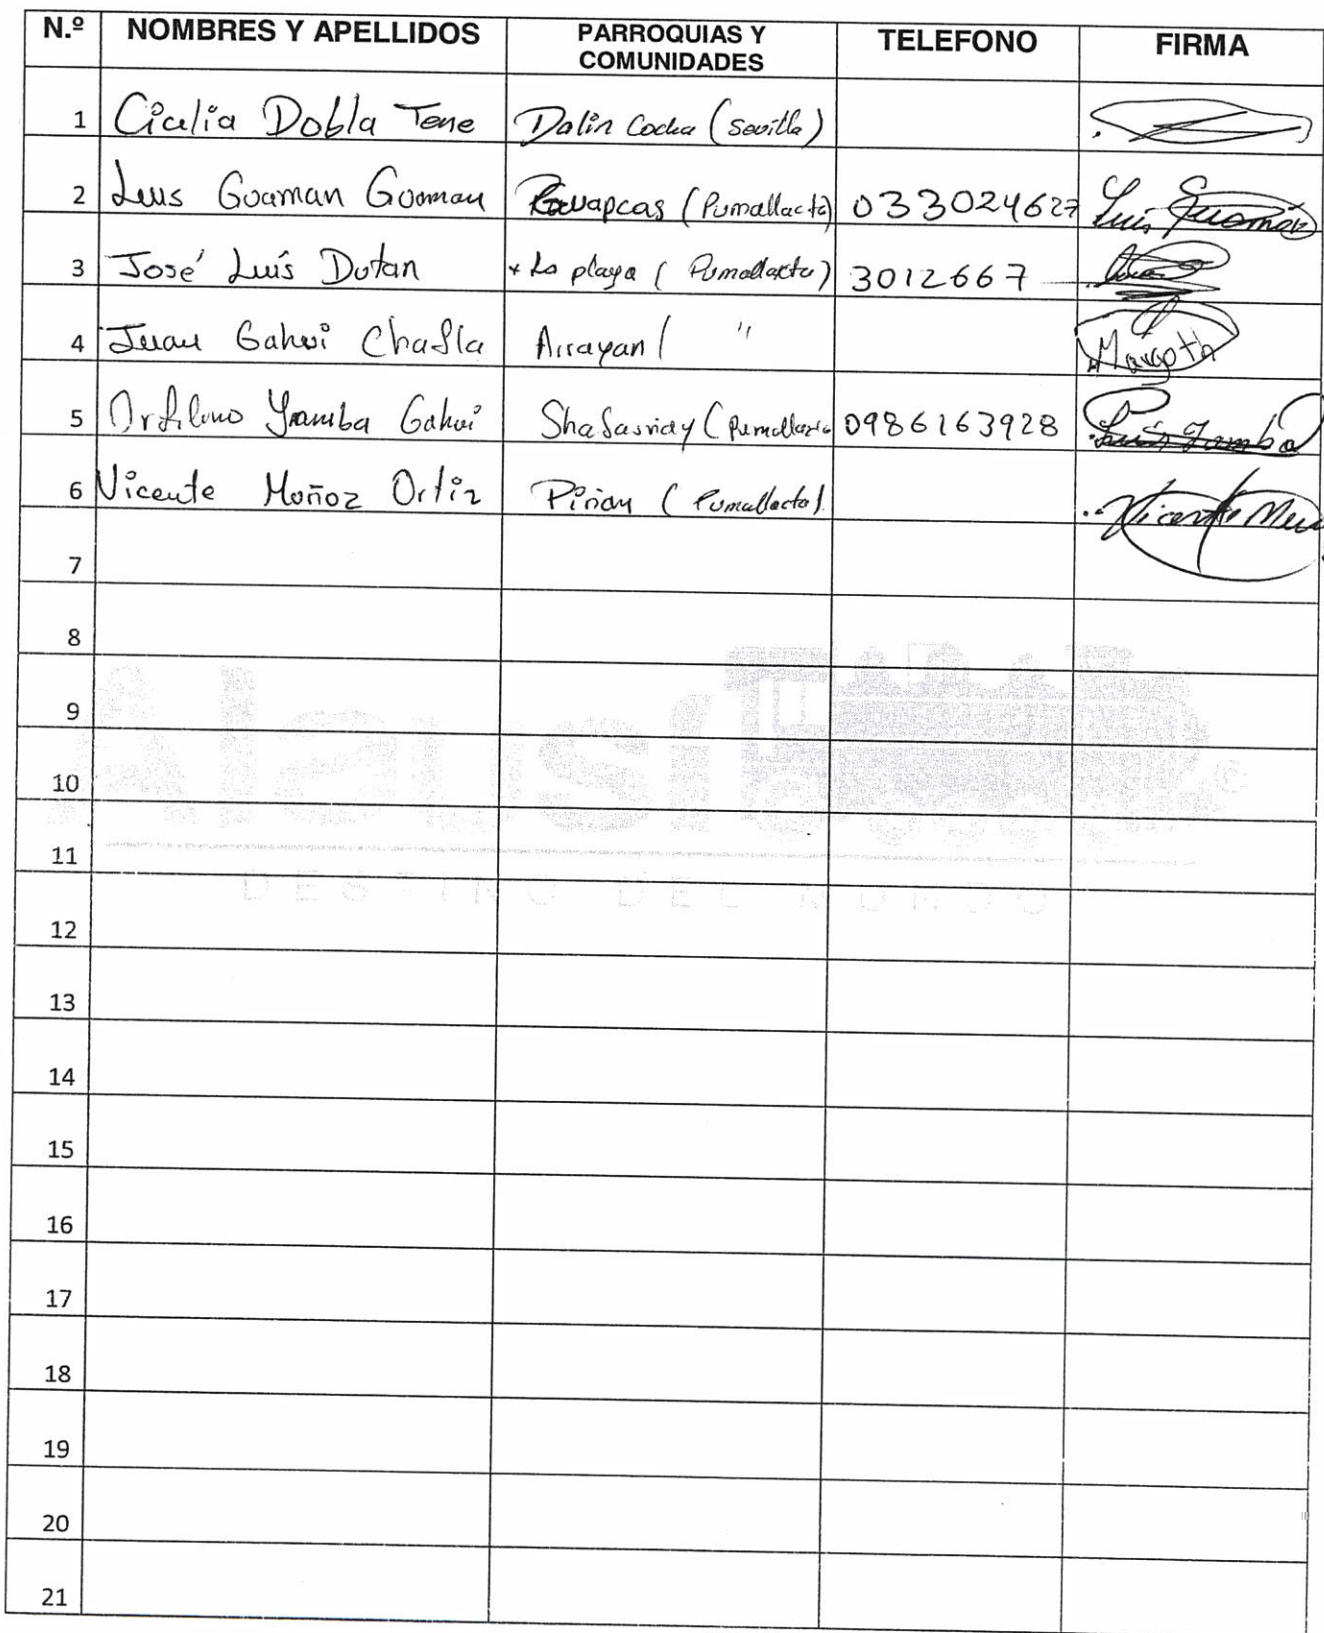 N.º NOMBRES Y APELLIDOS PARROQUIAS Y COMUNIDADES TELEFONO FIRMA
1 Cicilia Dobla Tene Dalin Cocha (Sevilla)
2 Luis Guaman Guaman (Pumallacta) 033024627 Luis Guamán
3 José Luís Dutan + La playa (Pumallacta) 3012667
4 Juan Gahui Chafla Arrayan ( " Margoth
5 Yamba Gahui (Pumallacta 0986163928 Luis Yamba
6 Vicente Moñoz Ortiz Piñan (Pumallacta). Vicente Mu
7
8
9
10
11
12
13
14
15
16
17
18
19
20
21
Alausí ®
DESTINO DEL MUNDO